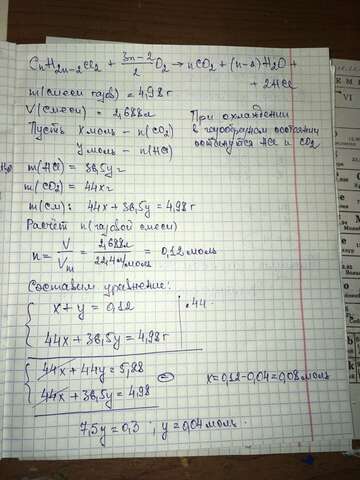 CnH2n-2Cl2 + 3n-2/2 O2 → nCO2 + (n-2)H2O +
+ 2HCl
m(смеси газов) = 4,98 г
V(смеси) = 2,688 л
При охлаждении
в газообразном состоянии
останутся HCl и CO2
Пусть x моль - n(CO2)
y моль - n(HCl)
m(HCl) = 36,5y г
m(CO2) = 44x г
m(см): 44x + 36,5y = 4,98 г
Расчёт n(газовой смеси)
n = V/Vm = 2,688 л/22,4 л/моль = 0,12 моль
Составим уравнение:
x + y = 0,12 | ·44
44x + 36,5y = 4,98 г
44x + 44y = 5,28
44x + 36,5y = 4,98
x = 0,12 - 0,04 = 0,08 моль
7,5y = 0,3 ; y = 0,04 моль.